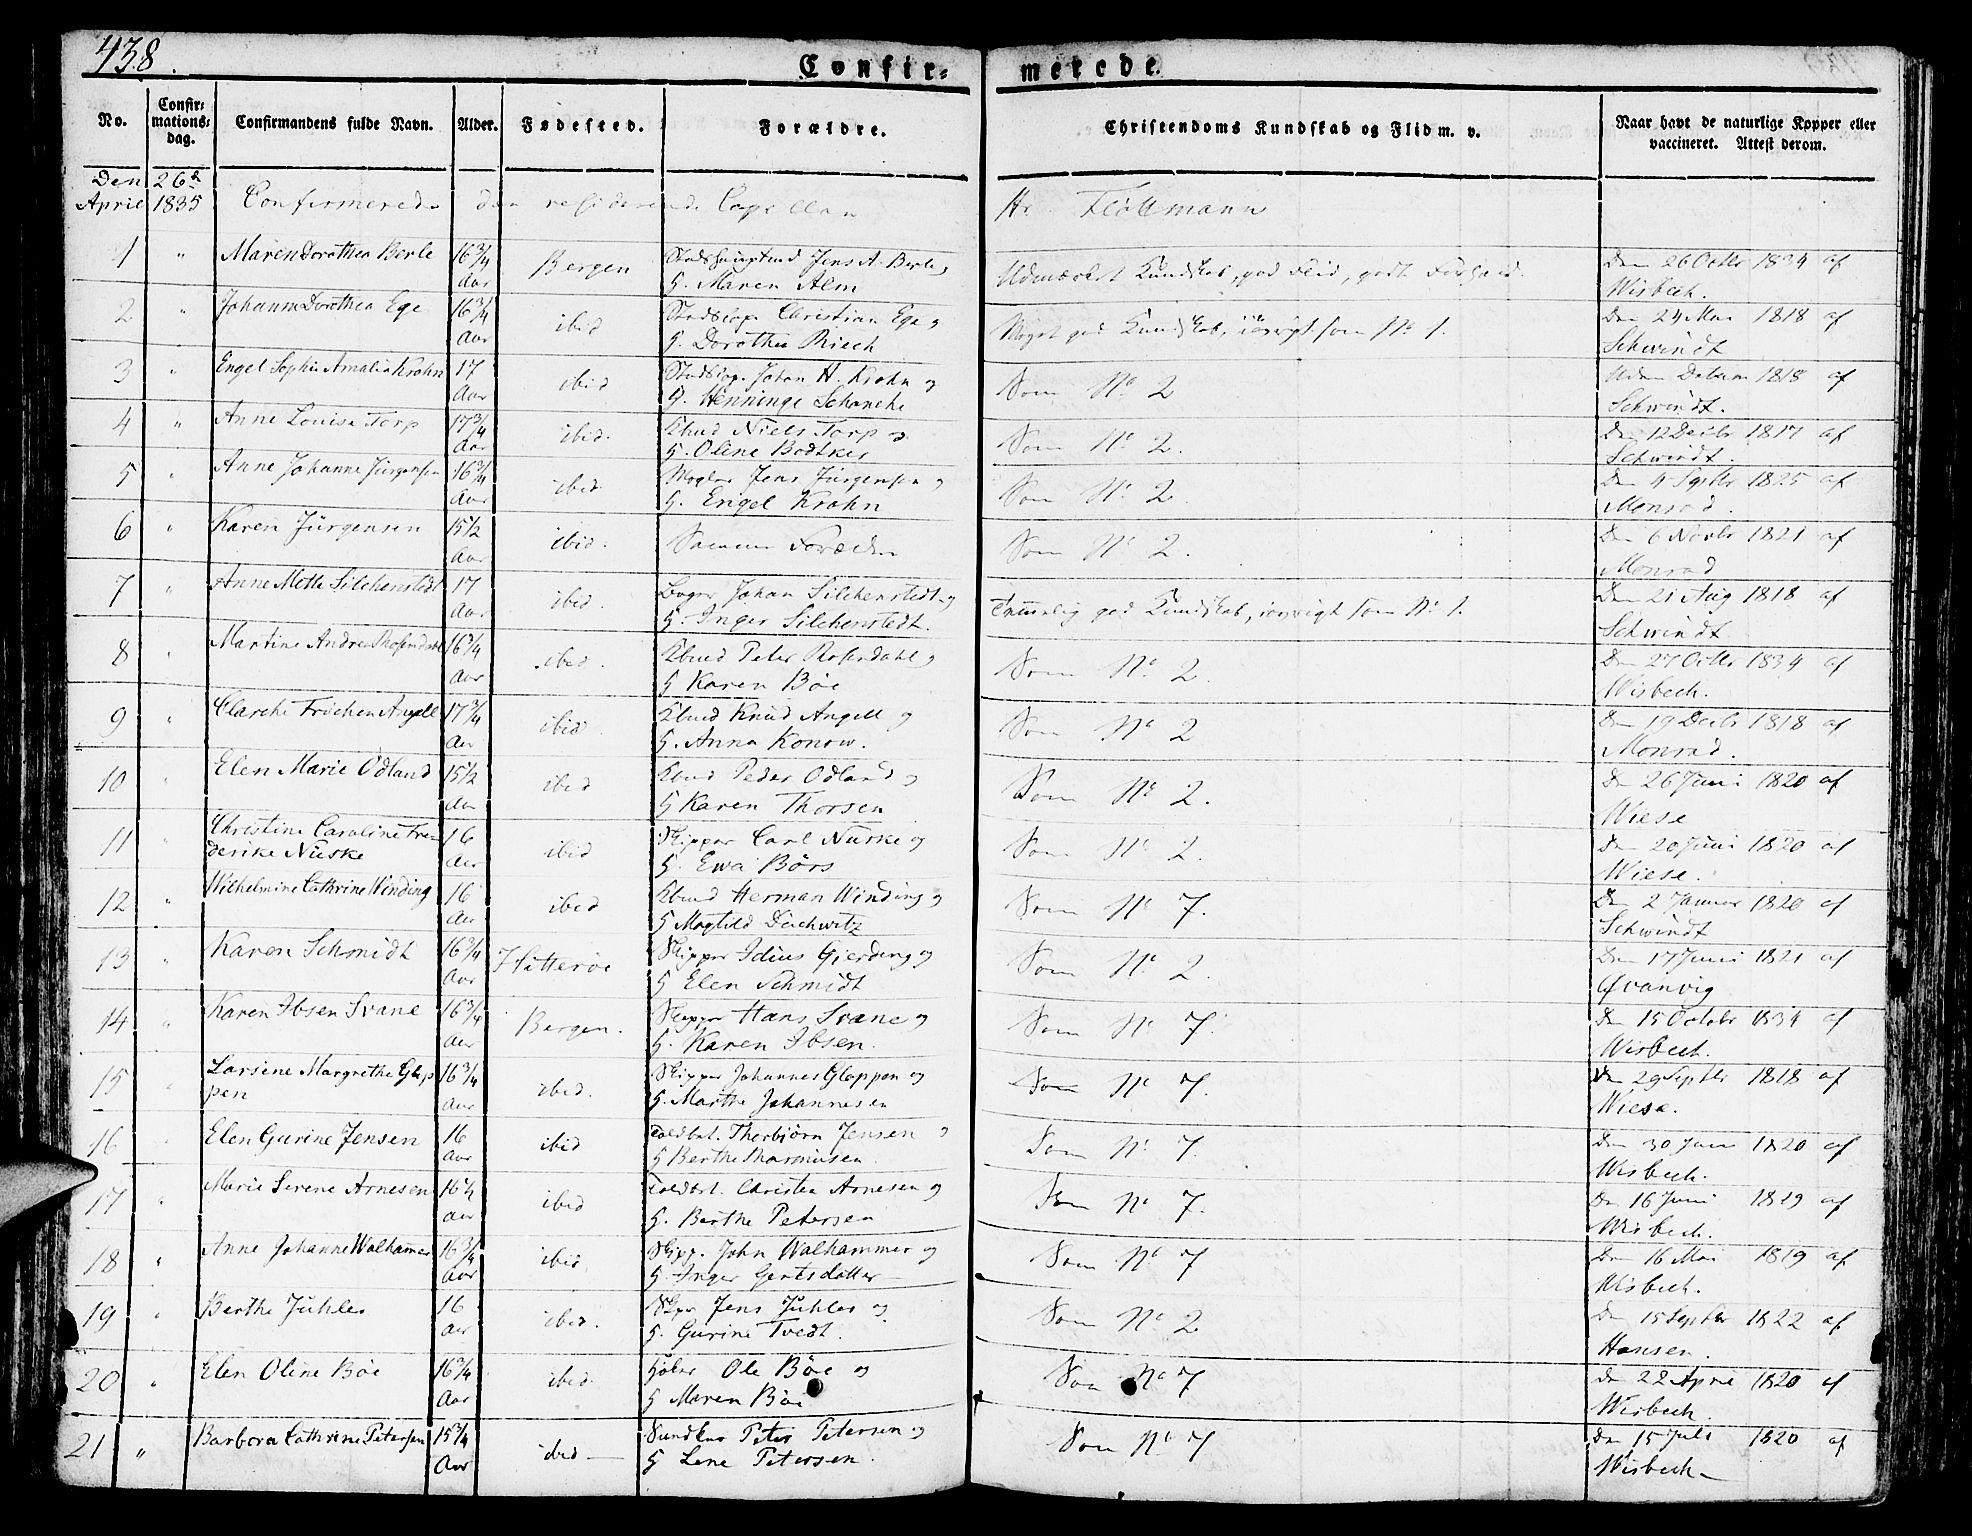 438.
Confir= merede.
No. Confir=mations=dag. Confirmandens fulde Navn. Alder. Fødested. Forældre. Christendoms Kundskab og Flid m. v. Naar havt de naturlige Kopper eller vaccineret. Attest derom.
Den 26d
April 1835 Confirmerede den residerende Capellan Hr. Flöttmann
1 " Maren Dorothea Berle 16 3/4 Aar Bergen Jens A. Berle og Udmærket Kundskab, god Flid, godt Forhold. Den 26 Octbr 1834 af
H. Maren Alm Wisbech.
2 " Johanne Dorothea Ege 16 3/4 Aar ibid Christian Ege og Meget god Kundskab, iøvrigt som No 1. Den 24 Mai 1818 af
H. Dorothea Schwindt
3 " Engel Sophie Amalia Krohn 17 Aar ibid Johan H. Krohn og Som No 2 Uden Datum 1818 af
H. Henninge Schwindt.
4 " Anne Louise Torp 17 3/4 Aar ibid. Kbmd Niels Torp og Som No 2. Den 12 Decbr 1817 af
H. Olene Bødtker Schwindt.
5 " Anne Johanne Jürgensen 16 3/4 Aar ibid. Mægler Jens Jürgensen og Som No 2. Den 4 Septbr 1825 af
H. Engel Krohn Monrad.
6 " Karen Jürgensen 15 1/2 Aar ibid. Samme Forældre Som No 2. Den 6 Novbr 1821 af
Monrad
7 " Anne Mette Silchenstedt 17 Aar ibid. Bager Johan Silchenstedt og Temmelig god Kundskab, iøvrigt som No 1. Den 21 Aug 1818 af
H. Inger Silchenstedt. Schwindt
8 " Martine Andrea Rosendahl 16 3/4 Aar ibid. Kbmd Peter Rosendahl og Som No 2. Den 27 Octbr 1834 af
H Karen Böe Wisbech.
9 " Clareke Frichen Angell 17 3/4 Aar ibid. Kbmd Knud Angell og Som No 2 Den 19 Decbr 1818 af
H. Anna Konow. Monrad.
10 " Elen Marie Odland 15 1/2 Aar ibid Kbmd Peder Odland og Som No 2. Den 26 Juni 1820 af
H Karen Thorsen Wiese
11 " Christine Caroline Fre- 16 Aar ibid Skipper Carl Nuske og Som No 2. Den 20 Juni 1820 af
derike Nuske H. Ewa Börs Wiese.
12 " Wilhelmine Cathrine Winding 16 Aar ibid Kbmd Herman Winding og Som No 7. Den 2 Januar 1820 af
H Magtild Dechwitz Schwindt
13 " Karen Schmidt 16 3/4 Aar Hitteröe Skipper Idius Gjerding og Som No 2. Den 17 Juni 1821 af
H Elen Schmidt Qvanvig
14 " Karen Ibsen Svane 16 3/4 Aar Bergen. Skipper Hans Svane og Som No 7. Den 15 Octobr 1834 af
H. Karen Ibsen. Wisbech.
15 " Larsine Margrethe Glop 16 3/4 Aar ibid. Skipper Johannes Gloppen og Som No 7. Den 29 Septbr 1818 af
pen H. Marthe Johannesen Wiese.
16 " Elen Gurine Jensen 16 Aar ibid Toldbet. Thorbjörn Jensen og Som No 7. Den 30 Juni 1820 af
H Berthe Rasmusen. Wisbech.
17 " Marie Serene Arnesen 16 1/2 Aar ibid Toldbet. Christen Arnesen og Som No 7. Den 16 Juni 1819 af
H. Berthe Petersen Wisbech.
18 " Anne Johanne Walhamer 16 3/4 Aar ibid Skipp. John Walhammer og Som No 7 Den 16 Mai 1819 af
H. Inger Gertsdatter Wisbech.
19 " Berthe Juhler 16 Aar ibid. Skpr Jens Juhler og Som No 2 Den 15 Septbr 1822 af
H. Gurine Tvedt. Hansen.
20 " Elen Oline Böe 16 3/4 Aar ibid Høker Ole Böe og Som No 7 Den 22 April 1820 af
H Maren Böe Wisbech.
21 " Barbora Cathrine Petersen 15 3/4 Aar ibid — Peter Petersen og Som No 7 Den 15 Juli 1820 af
H Lene Petersen. Wisbech —